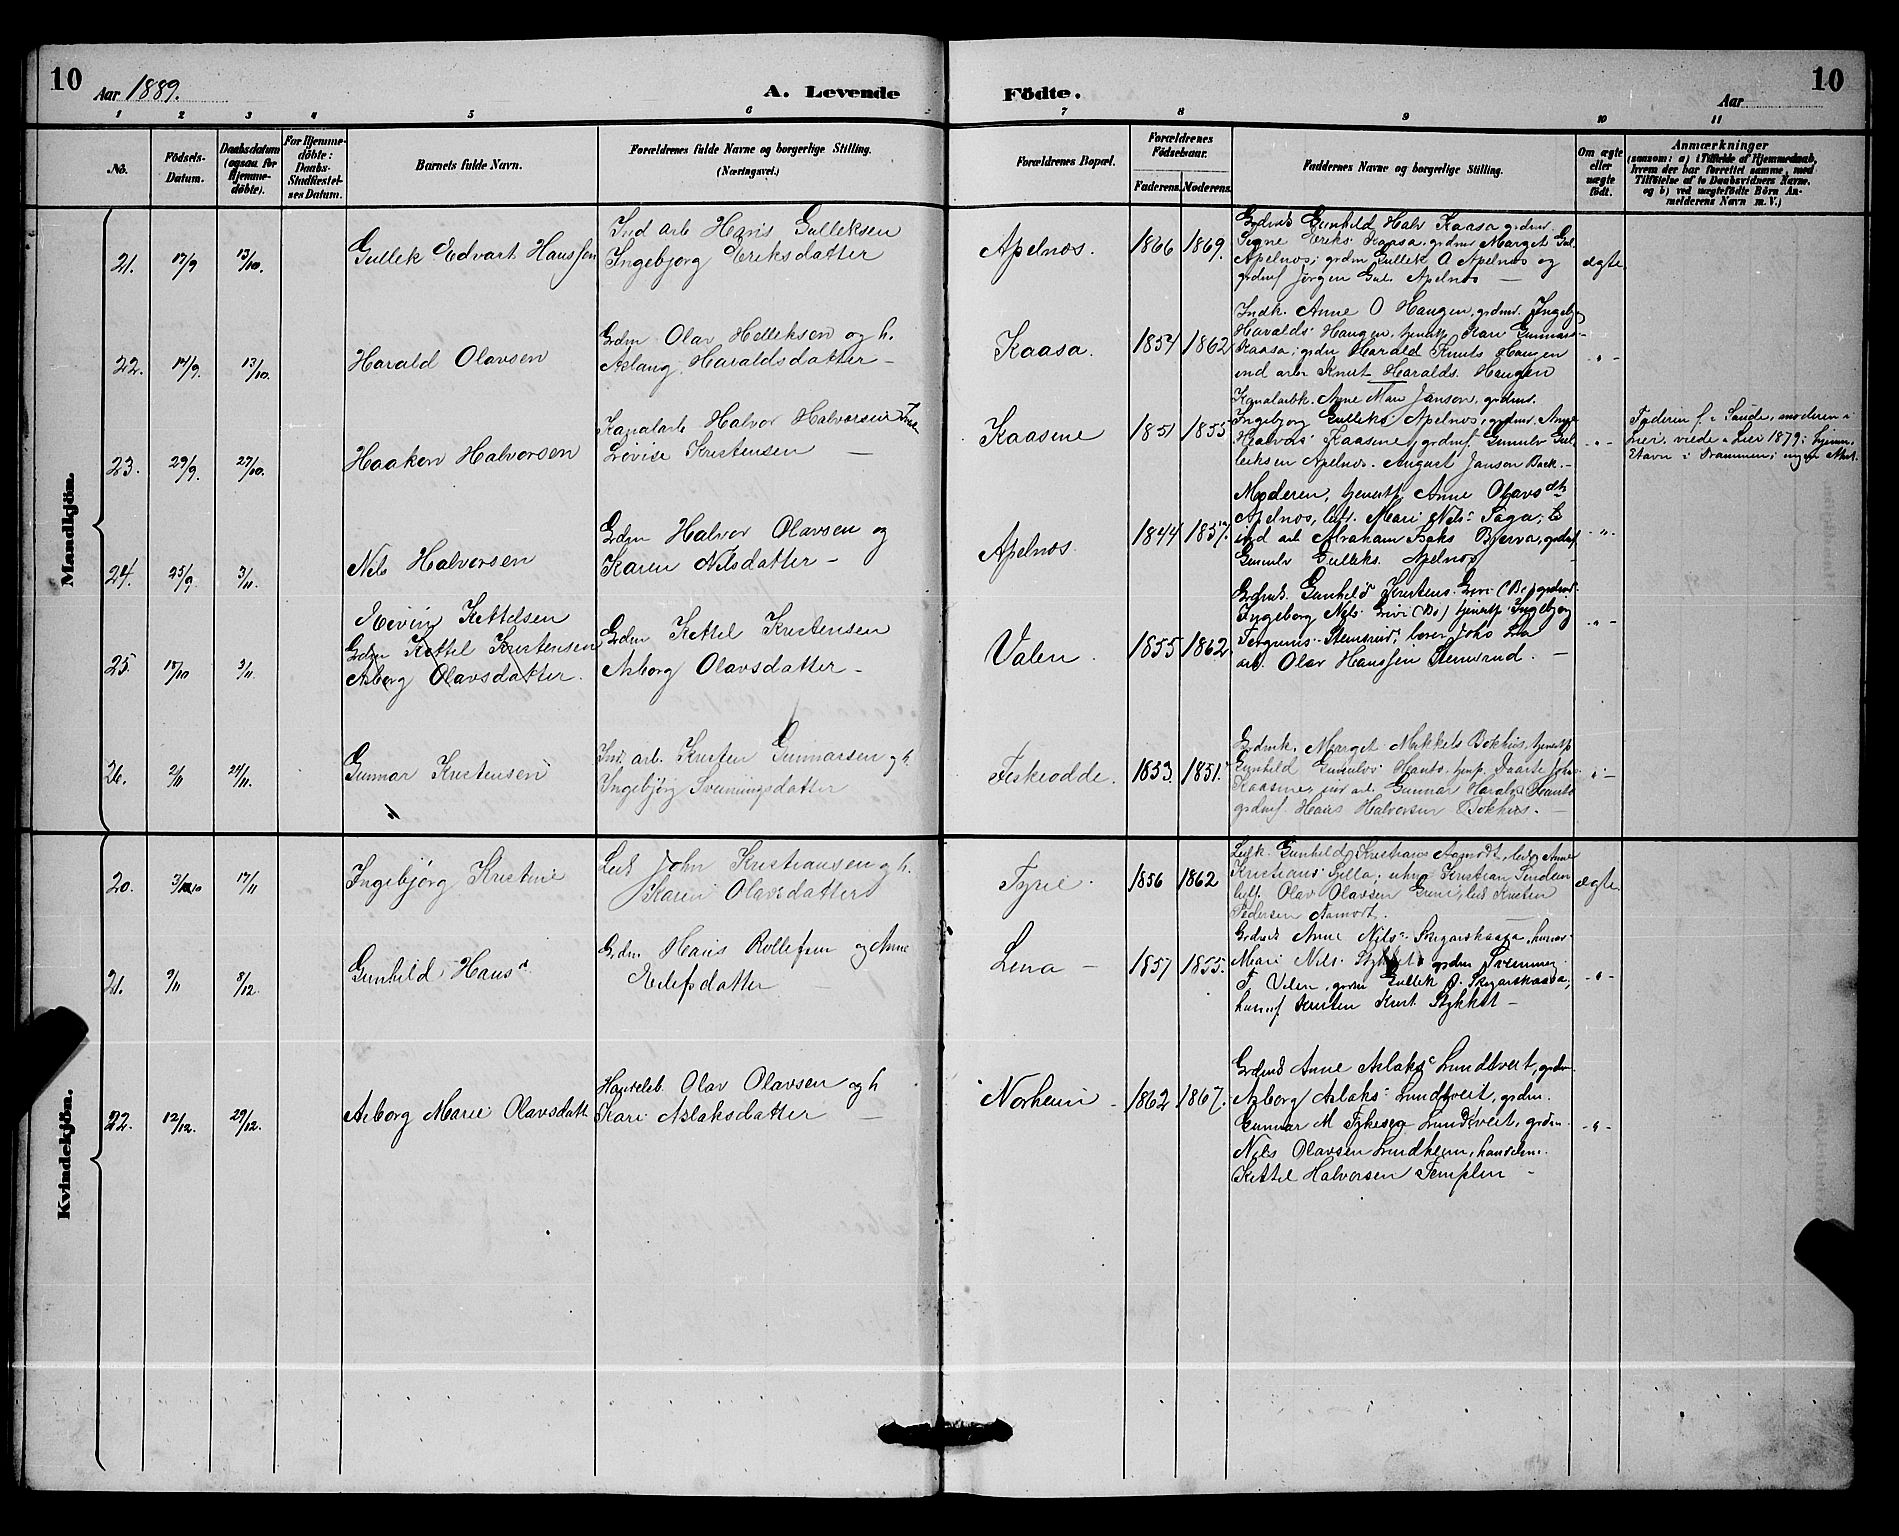 10
Aar 1889.
A. Levende
Födte.
Aar
10
1 2 3 4 5 6 7 8 9 10 11
No.
Födsels-
Datum.
Daabsdatum
(ogsaa for
Hjemme-
döbte).
For Hjemme-
döbte:
Daabs-
Stadfæstel-
ses Datum.
Barnets fulde Navn.
Forældrenes fulde Navne og borgerlige Stilling.
(Næringsvei.)
Forældrenes Bopæl.
Forældrenes
Födselsaar.
Faderens. Moderens.
Faddernes Navne og borgerlige Stilling.
Om ægte
eller
uægte
födt.
Anmærkninger
(saasom: a) i Tilfælde af Hjemmedaab,
hvem der har forrettet samme, med
Tilföielse af to Daabsvidners Navne,
og b) ved uægtefödte Börn An-
melderens Navn m. V.)
Mandkjön.
21. 17/9 13/10. Gullek Edvart Hanssen
Ind arb Hans Gulleksen
Ingebjorg Eriksdatter
Apelnos. 1866 1869.
Grdmd. Gunhild Halv Kaasa grdmr.
Signe Eriks. Kaasa, grdmr Marget Gul.
Apelnos; grdm Gullek O Apelnos og
grdmf Jörgen Gul. Apelnos —
ægte
22. 14/9. 13/10. Harald Olavsen
Grdm Olav Helleksen og h.
Aslaug Haraldsdatter —
Kaasa. 1854 1862
Indk. Anne O Haugen, grdmr. Ingeb
Haralds Haugen, tjenstp Kari Gunnars
Kaasa; grdm Harald Knuts Haugen
ind arbr Knut Haralds. Haugen
- " -
23. 29/9. 27/10. Haaken Halvorsen
Kanalarb Halvor Halvorsen
Lovise Kristensen —
Kaasene 1851 1855
Kanalarbk. Anne Mari Janson, grdmr.
Ingebjorg Gulleks Apelnos, grdmr. Anne
Halvors Kaasene, grdmf Gunulv Gul
leksen Apelnos. August Janson Back. —
- " -
Faderen f. i Saude, moderen i
Lier, viede i Lier 1879; hjemm.
Stavn i Drammen; ingen Attest.
24. 25/9. 3/11. Nils Halvorsen
Grdm Halvor Olavsen og
Karen Nilsdatter —
Apelnos. 1844 1857.
Moderen, tjenstp. Anne Olavsdtr
Apelnos, Mari Nils. Saga;
ind arb Abraham Isaks Bjerva, grdmf
Gunulv Gulleks. Apelnos —
- " -
25. 17/10 3/11. Eivin Kettelsen
Grdm Kettel Kristensen
Asborg Olavsdatter.
Grdm Kettel Kristensen
Asborg Olavsdatter —
Valen. 1855 1862.
Grdmd. Gunhild Kristens. Grivi (Bø) grdmd
Ingeborg Nils Grivi (Bø) tjenstp Ingebjorg
Torgrims Stensrud,
arb. Olav Hanssen Stensrud. —
- " -
26. 2/11 24/11. Gunnar Kristensen
Ind. arb. Kristen Gunnarsen og h.
Ingebjörg Sveinungsdatter
Fiskrodde. 1853. 1851.
Grdmk. Marget Mikkels Bokhus, tjenstp
Gunhild Gunulvs Hanto, tjnp. Daarte Johs
Kaasene, ind arb. Gunnar Haralds Hanto
grdmf. Hans Halvorsen Bokhus. —
- " -
Kvindekjön.
20. 3/10 17/11 Ingebjörg Kristine
Leil John Kristiansen og h.
Karen Olavsdatter
Tyrie. 1856 1862
Leilk. Gunhild Kristians Aamodt, leil Anne
Kristians Sylla; Kristian Sindein
Olav Olavsen Guni; leil Kristen
Pedersen Aamodt.
ægte
21. 9/11 8/12. Gunhild Hansd
Grdm. Hans Rollefsen og Anne
Eilefsdatter —
Lina — 1857 1855.
Grdmd Anne Nils. Skogarskaasa, husm
Mari Nils. Stykket grdm Sveinung
T. Valen, grdm Gullek O. Skogarskaasa,
husmf Kristen Knut. Stykket —
- " -
22. 12/12. 29/12. Asborg Marie Olavsdatt
Handelsb. Olav Olavsen og h
Kari Aslaksdatter —
Norheim — 1862 1867.
Grdmd Anne Aslaks Lundtveit, grdm
Asborg Aslaks Lundtveit, grdm.
Gunnar M Tykesen Lundtveit, grdm.
Nils Olavsen Lindheim, handelsm.
Kettel Halvorsen Templen —
- " -